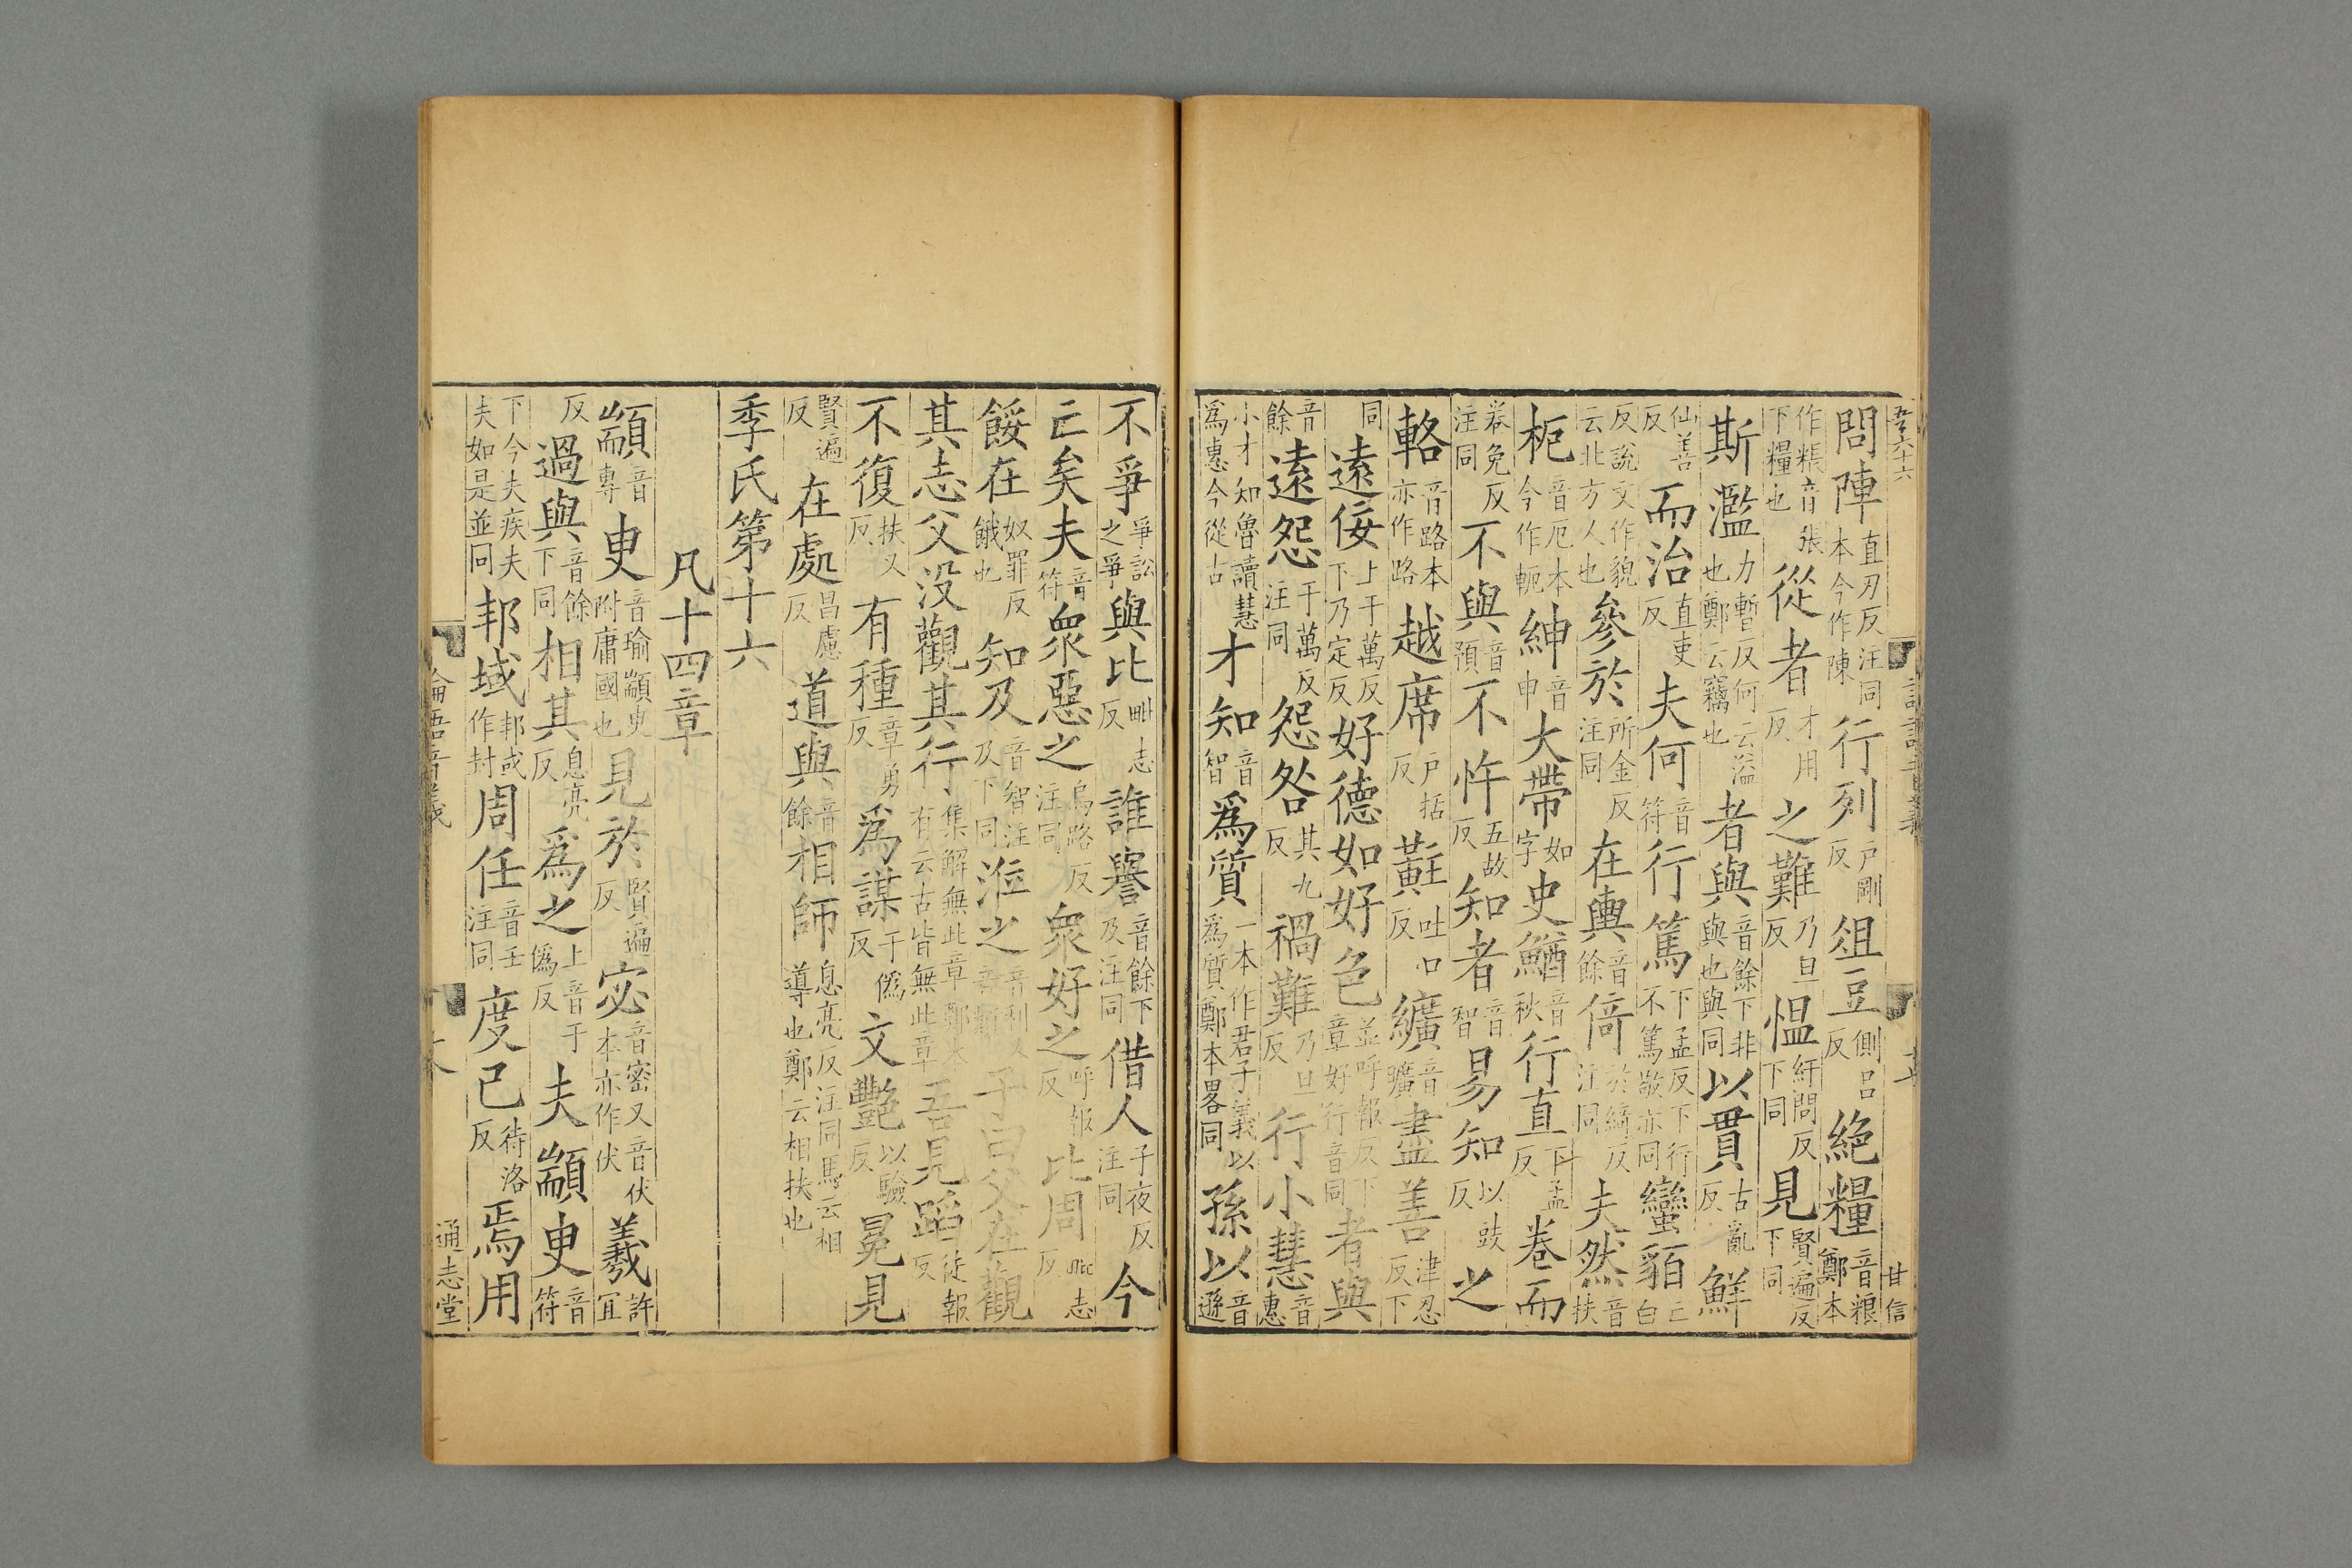 問陣直刃反注同本今作陳行列戶剛反俎豆側呂反絶糧音粮鄭本
作粻音張下糧也從者才用反之難乃旦反慍紆問反下同見賢遍反下同
斯濫力暫反何云溢也鄭云竊也者與音餘下非與也與同以貫古亂反鮮
仙善反而治直吏反夫何音符行篤下孟反下行不篤敬亦同蠻貊亡白
反說文作貌云北方人也參於所金反注同在輿音餘倚於綺反注同夫然音扶
枙音厄本今作軛紳音申大帶如字史鰌音秋行直下孟反卷而
眷免反注同不與音預不忤五故反知者音智易知以豉反之
輅音路本亦作路越席戶括反黈吐口反纊音曠盡善津忍反下
同遠佞上于萬反下乃定反好德如好色並呼報反下章好行音同者與
音餘遠怨于萬反注同怨咎其九反禍難乃旦反行小慧音惠
小才知魯讀慧爲惠今從古才知音智爲質一本作君子義以爲質鄭本畧同孫以音遜
不爭爭訟之爭與比毗志反誰譽音餘下及注同借人子夜反注同今
亡矣夫音符衆惡之烏路反注同衆好之呼報反比周毗志反
餒在奴罪反餓也知及音智注及下同涖之音利又音類子曰父在觀
其志父没觀其行集解無此章鄭本有云古皆無此章吾見蹈徒報反
不復扶又反有種章勇反爲謀于僞反文艷以驗反冕見
賢遍反在處昌慮反道與音餘相師息亮反注同馬云相導也鄭云相扶也
季氏第十六
凡十四章
顓音專臾音瑜顓臾附庸國也見於賢遍反宓音密又音伏本亦作伏羲許冝
反過與音餘下同相其息亮反爲之上音于僞反夫顓臾音符
下今夫疾夫夫如是並同邦域邦或作封周任音壬注同度已待洛反焉用
通志堂